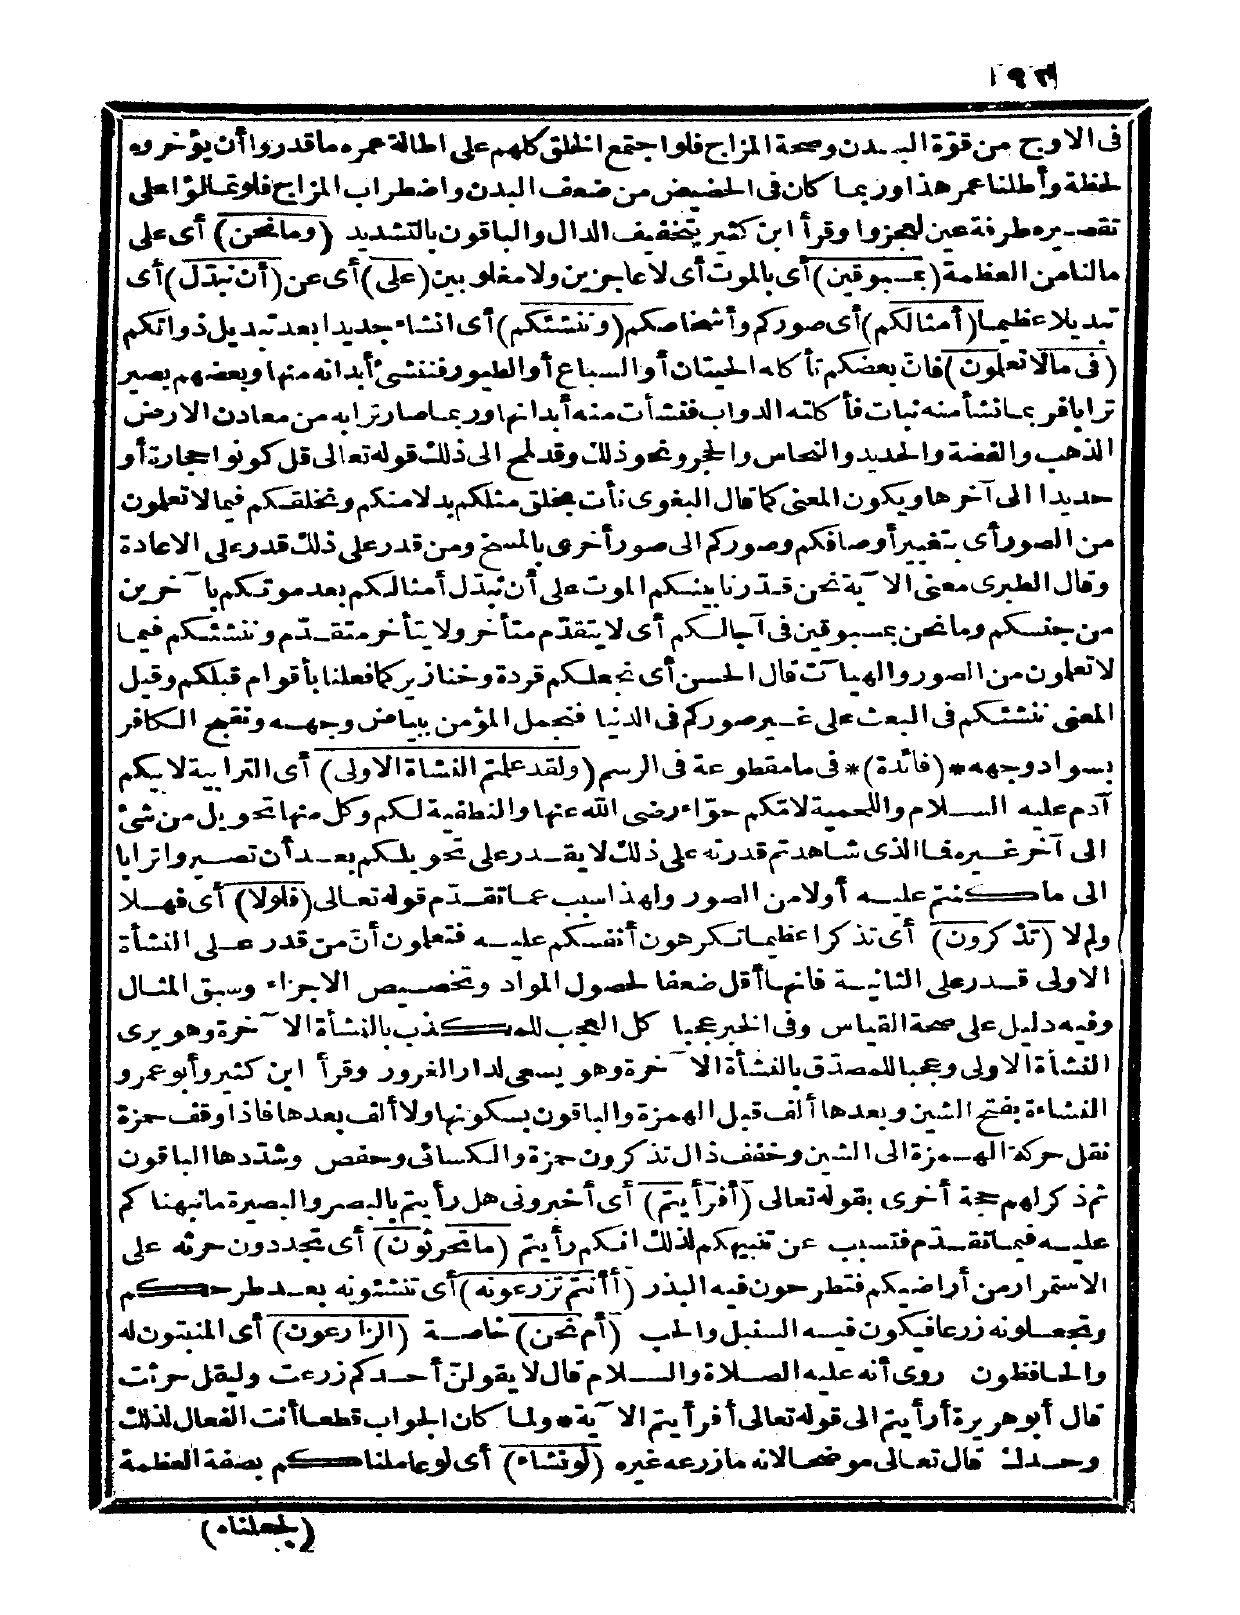 ١٩٢
فى الاوج من قوّة البدن وصحة المزاج فلو اجتمع الخلق كلهم على اطالة عمره ما قدروا أن يؤخروه
لحظة وأطلنا عمر هذا وربما كان فى الحضيض من ضعف البدن واضطراب المزاج فلو تمالؤا على
تقصيره طرفة عين لعجزوا وقرأ ابن كثير بتخفيف الدال والباقون بالتشديد (وما نحن) أى على
مالنا من العظمة (بمسبوقين) أى بالموت أى لا عاجزين ولا مغلوبين (على) أى عن (أن نبدّل) أى
تبديلا عظيما (أمثالكم) أى صوركم وأشخاصكم (وننشئكم) أى انشاء جديدا بعد تبديل ذواتكم
(فى مالا تعلمون) فانّ بعضكم تأكله الحيتان أو السباع أو الطيور فننشئ أبدانه منها وبعضهم يصير
ترابا فربما نشأ منه نبات فأكلته الدواب فنشأت منه أبدانها وربما صار ترابه من معادن الارض
الذهب والفضة والحديد والنحاس والحجر ونحو ذلك وقد لمح الى ذلك قوله تعالى قل كونوا حجارة أو
حديدا الى آخرها ويكون المعنى كما قال البغوى نأت بخلق مثلكم بدلا منكم ونخلقكم فيما لا تعلمون
من الصور أى بتغيير أوصافكم وصوركم الى صور أخرى بالمسخ ومن قدر على ذلك قدر على الاعادة
وقال الطبرى معنى الآية نحن قدّرنا بينكم الموت على أن نبدّل أمثالكم بعد موتكم بآخرين
من جنسكم وما نحن بمسبوقين فى آجالكم أى لا يتقدّم متأخر ولا يتأخر متقدّم وننشئكم فيما
لا تعلمون من الصور والهيآت قال الحسن أى نجعلكم قردة وخنازير كما فعلنا بأقوام قبلكم وقيل
المعنى ننشئكم فى البعث على غير صوركم فى الدنيا فنجمل المؤمن ببياض وجهه ونقبح الكافر
بسواد وجهه * (فائدة) * فى ما مقطوعة فى الرسم (ولقد علمتم النشأة الاولى) أى الترابية لابيكم
آدم عليه السلام واللحمية لامّكم حوّاء رضى الله عنها والنطفية لكم وكل منها تحويل من شئ
الى آخر غيره فما الذى شاهدتم قدرته على ذلك لا يقدر على تحويلكم بعد أن تصيروا ترابا
الى ما كنتم عليه أولا من الصور ولهذا سبب عما تقدّم قوله تعالى (فلولا) أى فهلا
ولم لا (تذكرون) أى تذكرا عظيما تكرهون أنفسكم عليه فتعلمون أنّ من قدر على النشأة
الاولى قدر على الثانية فانها أقل ضعفا لحصول المواد وتخصيص الاجزاء وسبق المثال
وفيه دليل على صحة القياس وفى الخبر عجبا كل العجب للمكذب بالنشأة الآخرة وهو يرى
النشأة الاولى وعجبا للمصدّق بالنشأة الآخرة وهو يسعى لدار الغرور وقرأ ابن كثير وأبو عمرو
النشاءة بفتح الشين وبعدها ألف قبل الهمزة والباقون بسكونها ولا ألف بعدها فاذا وقف حمزة
نقل حركة الهمزة الى الشين وخفف ذال تذكرون حمزة والكسائى وحفص وشدّدها الباقون
ثم ذكر لهم حجة أخرى بقوله تعالى (أفرأيتم) أى أخبرونى هل رأيتم بالبصر والبصيرة ما نبهناكم
عليه فيما تقدّم فتسبب عن تنبيهكم لذلك انكم رأيتم (ما تحرثون) أى تجددون حرثه على
الاستمرار من أراضيكم فتطرحون فيه البذر (أأنتم تزرعونه) أى تنشئونه بعد طرحكم
وتجعلونه زرعا فيكون فيه السنبل والحب (أم نحن) خاصة (الزارعون) أى المنبتون له
والحافظون روى أنه عليه الصلاة والسلام قال لا يقولنّ أحدكم زرعت وليقل حرثت
قال أبو هريرة أرأيتم الى قوله تعالى أفرأيتم الآية * ولما كان الجواب قطعا أنت الفعال لذلك
وحدك قال تعالى موضحا لانه ما زرعه غيره (لو نشاء) أى لو عاملناكم بصفة العظمة
(لجعلناه)